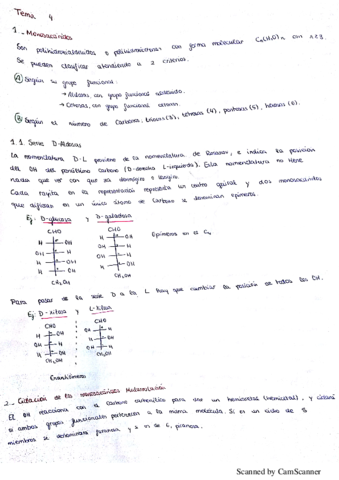 Tema 4
1.- Monosacáridos
Son polihidroxialdehidos o polihidroxicetonas con forma molecular Cn(H2O)n con n≥3.
Se pueden clasificar atendiendo a 2 criterios.
A Según su grupo funcional
→ Aldosas, con grupo funcional aldehído.
→ Cetosas, con grupo funcional cetona.
B Según el número de carbono, triosas (3), tetrosas (4), pentosas (5), hexosas (6).
1.1. Serie D-Aldosas
La nomenclatura D-L proviene de la nomenclatura de Rosanov, e indica la posición
del OH del penúltimo carbono (D-derecha L-izquierda). Esta nomenclatura no tiene
nada que ver con que sea dextrógiro o levógiro.
Cada rayita en la representación representa un centro quiral y dos monosacáridos
que difieran en un único átomo de carbono se denominan epímeros.
Ej: D-glucosa y D-galactosa
CHO CHO
H OH H OH
OH H OH H Epímeros en el C4
H OH OH H
H OH H OH
CH2OH CH2OH
Para pasar de la serie D a la L hay que cambiar la posición de todos los OH.
Ej: D-xilosa y L-xilosa
CHO CHO
H OH OH H
OH H H OH
H OH OH H
CH2OH CH2OH
Enantiómeros
2.- Ciclación de los monosacáridos
El OH reacciona con el carbono carbonílico para dar un hemiacetal (hemicetal), y ciclará
si ambos grupos funcionales pertenecen a la misma molécula. Si es un ciclo de 5
miembros se denominará furanosa, y si es de 6, piranosa.
Scanned by CamScanner